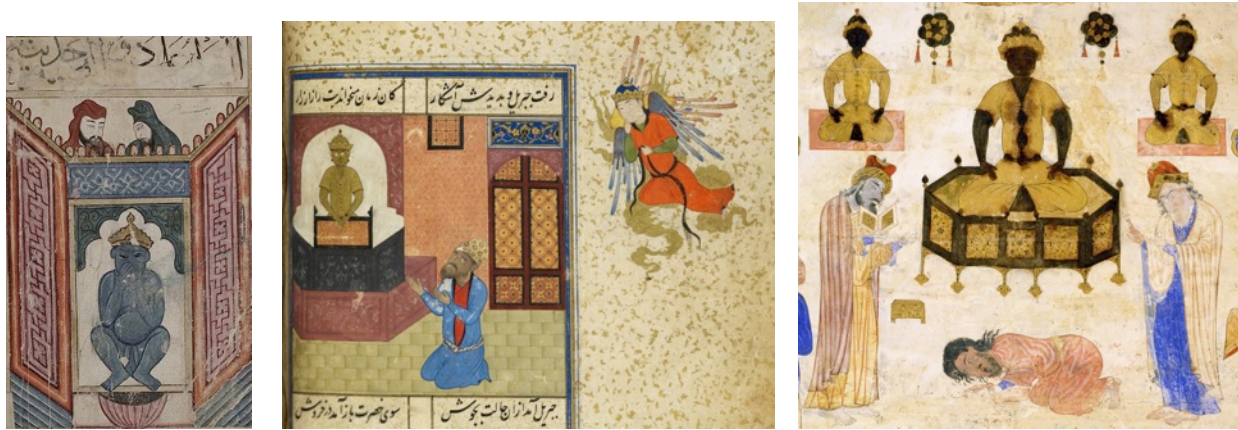 رفت جبریل و بدیدش آشکار کان زمان میخواند بت را زار زار
جبریل آمد از آن حالت بجوش سوی حضرت باز آمد در خروش